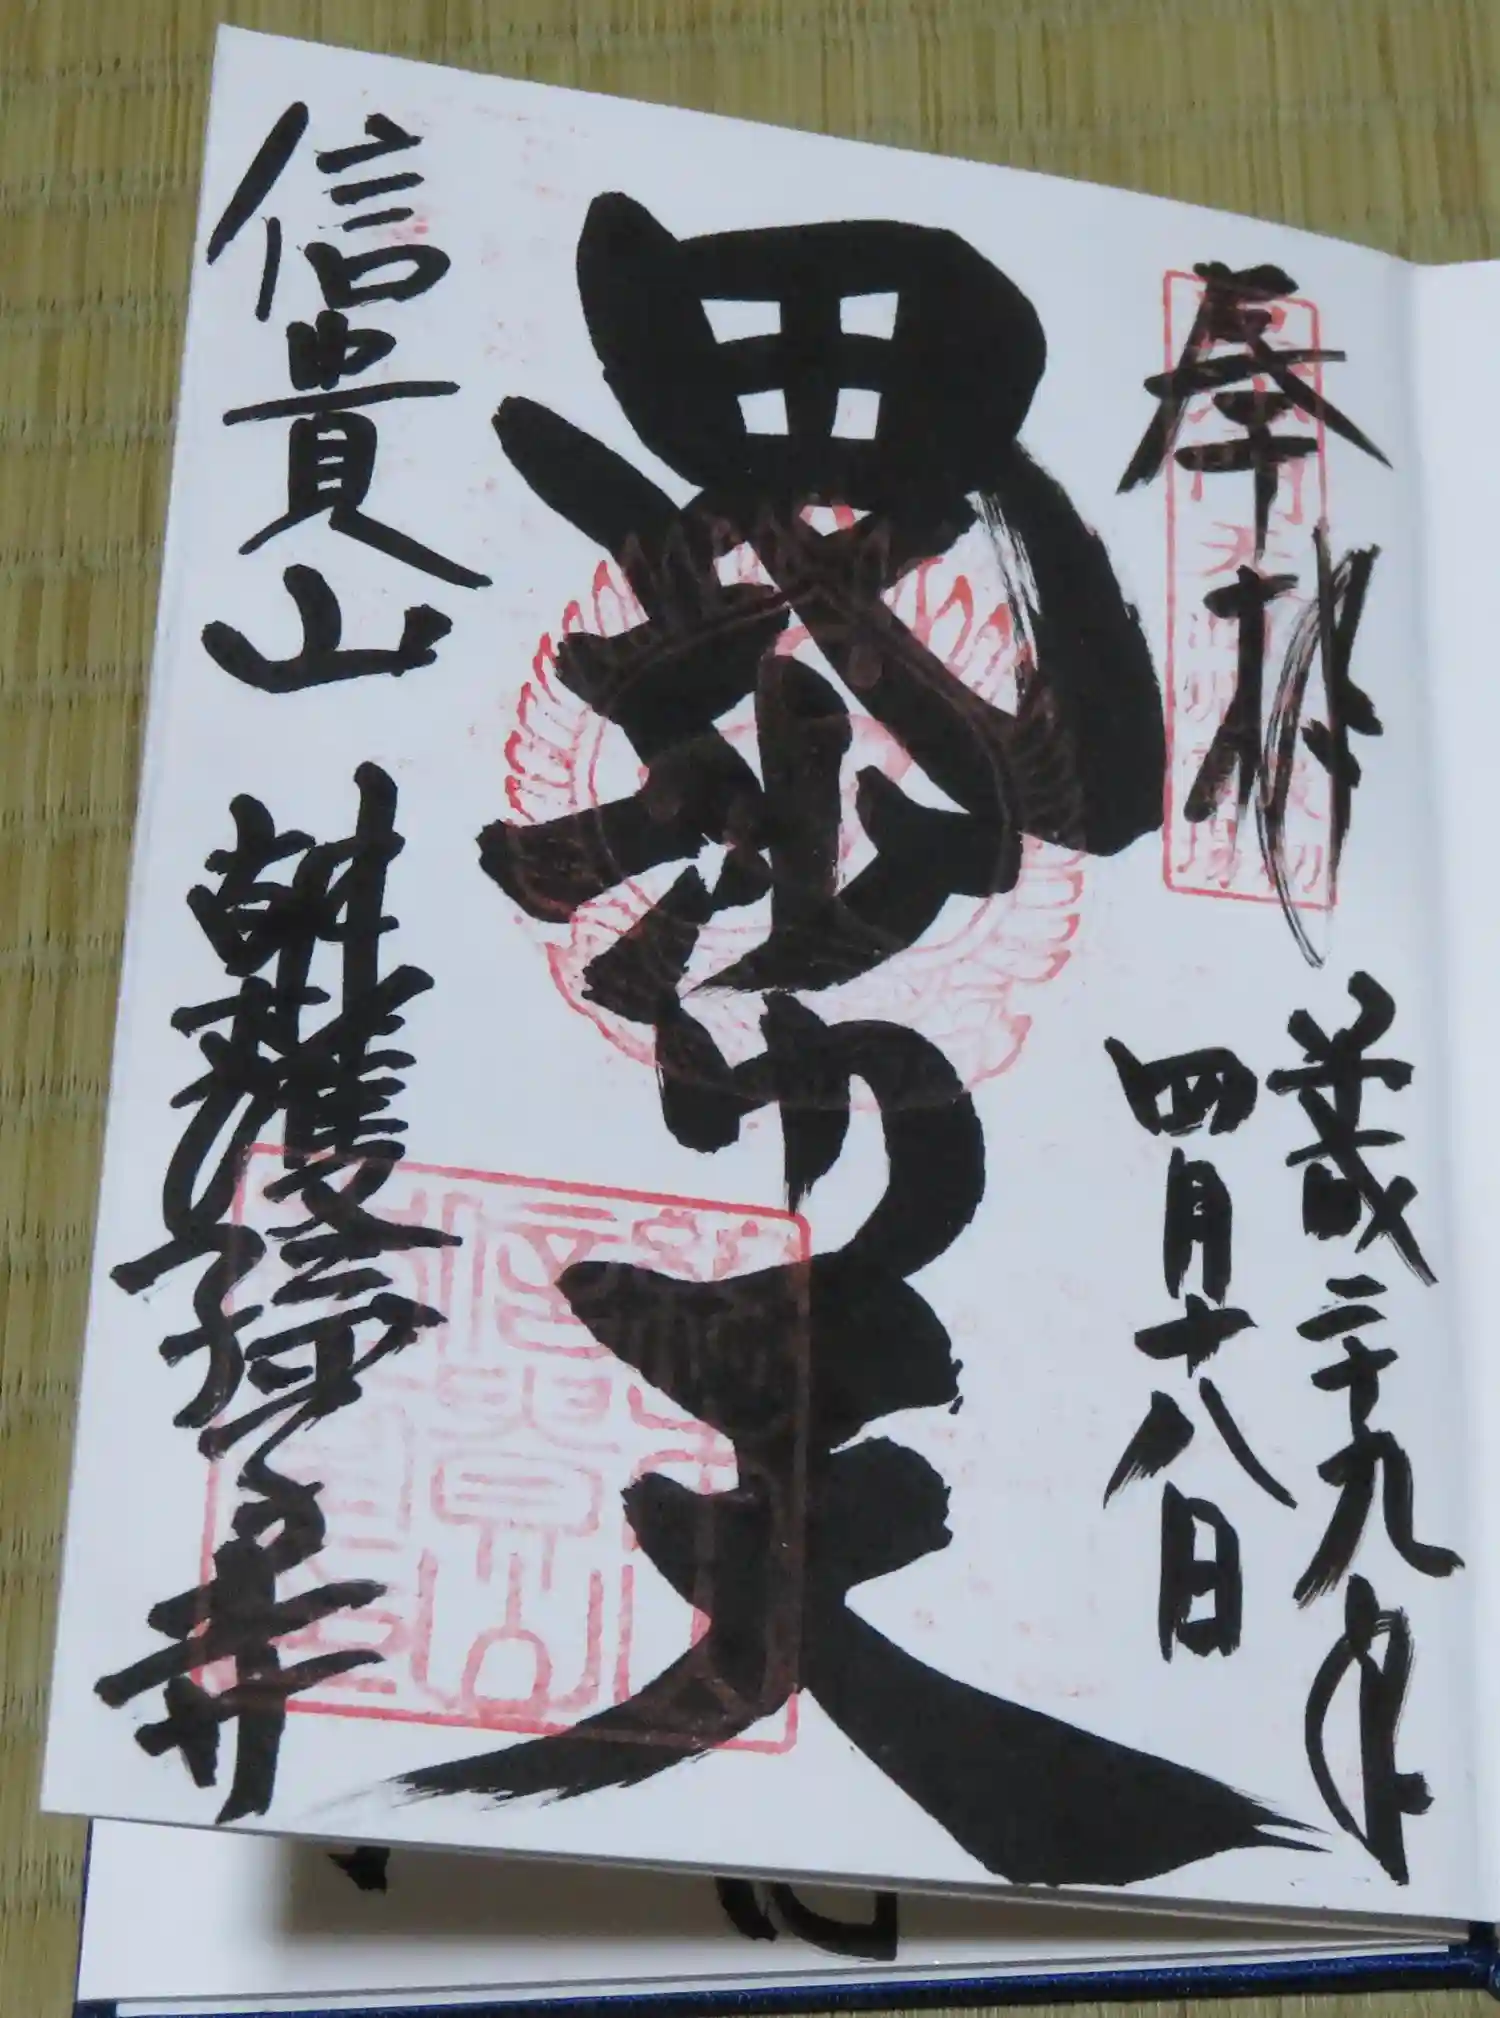 奉拝
平成二十九年
四月十八日
毘沙門天
信貴山 朝護孫子寺